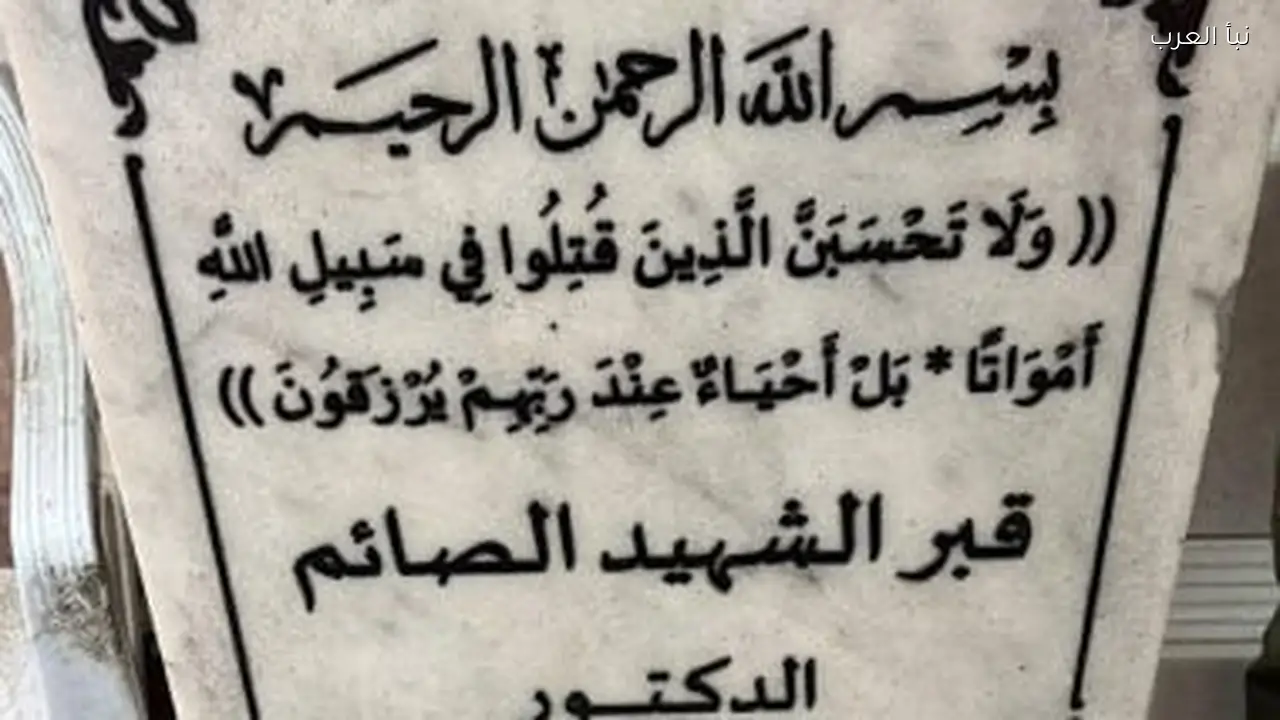 نبأ العرب
بِسْمِ اللهِ الرحمن الرحيم
(( وَلَا تَحْسَبَنَّ الَّذِينَ قُتِلُوا فِي سَبِيلِ اللَّهِ
أَمْوَاتًا * بَلْ أَحْيَاءٌ عِنْدَ رَبِّهِمْ يُرْزَقُونَ ))
قبر الشهيد الصائم
الدكتور